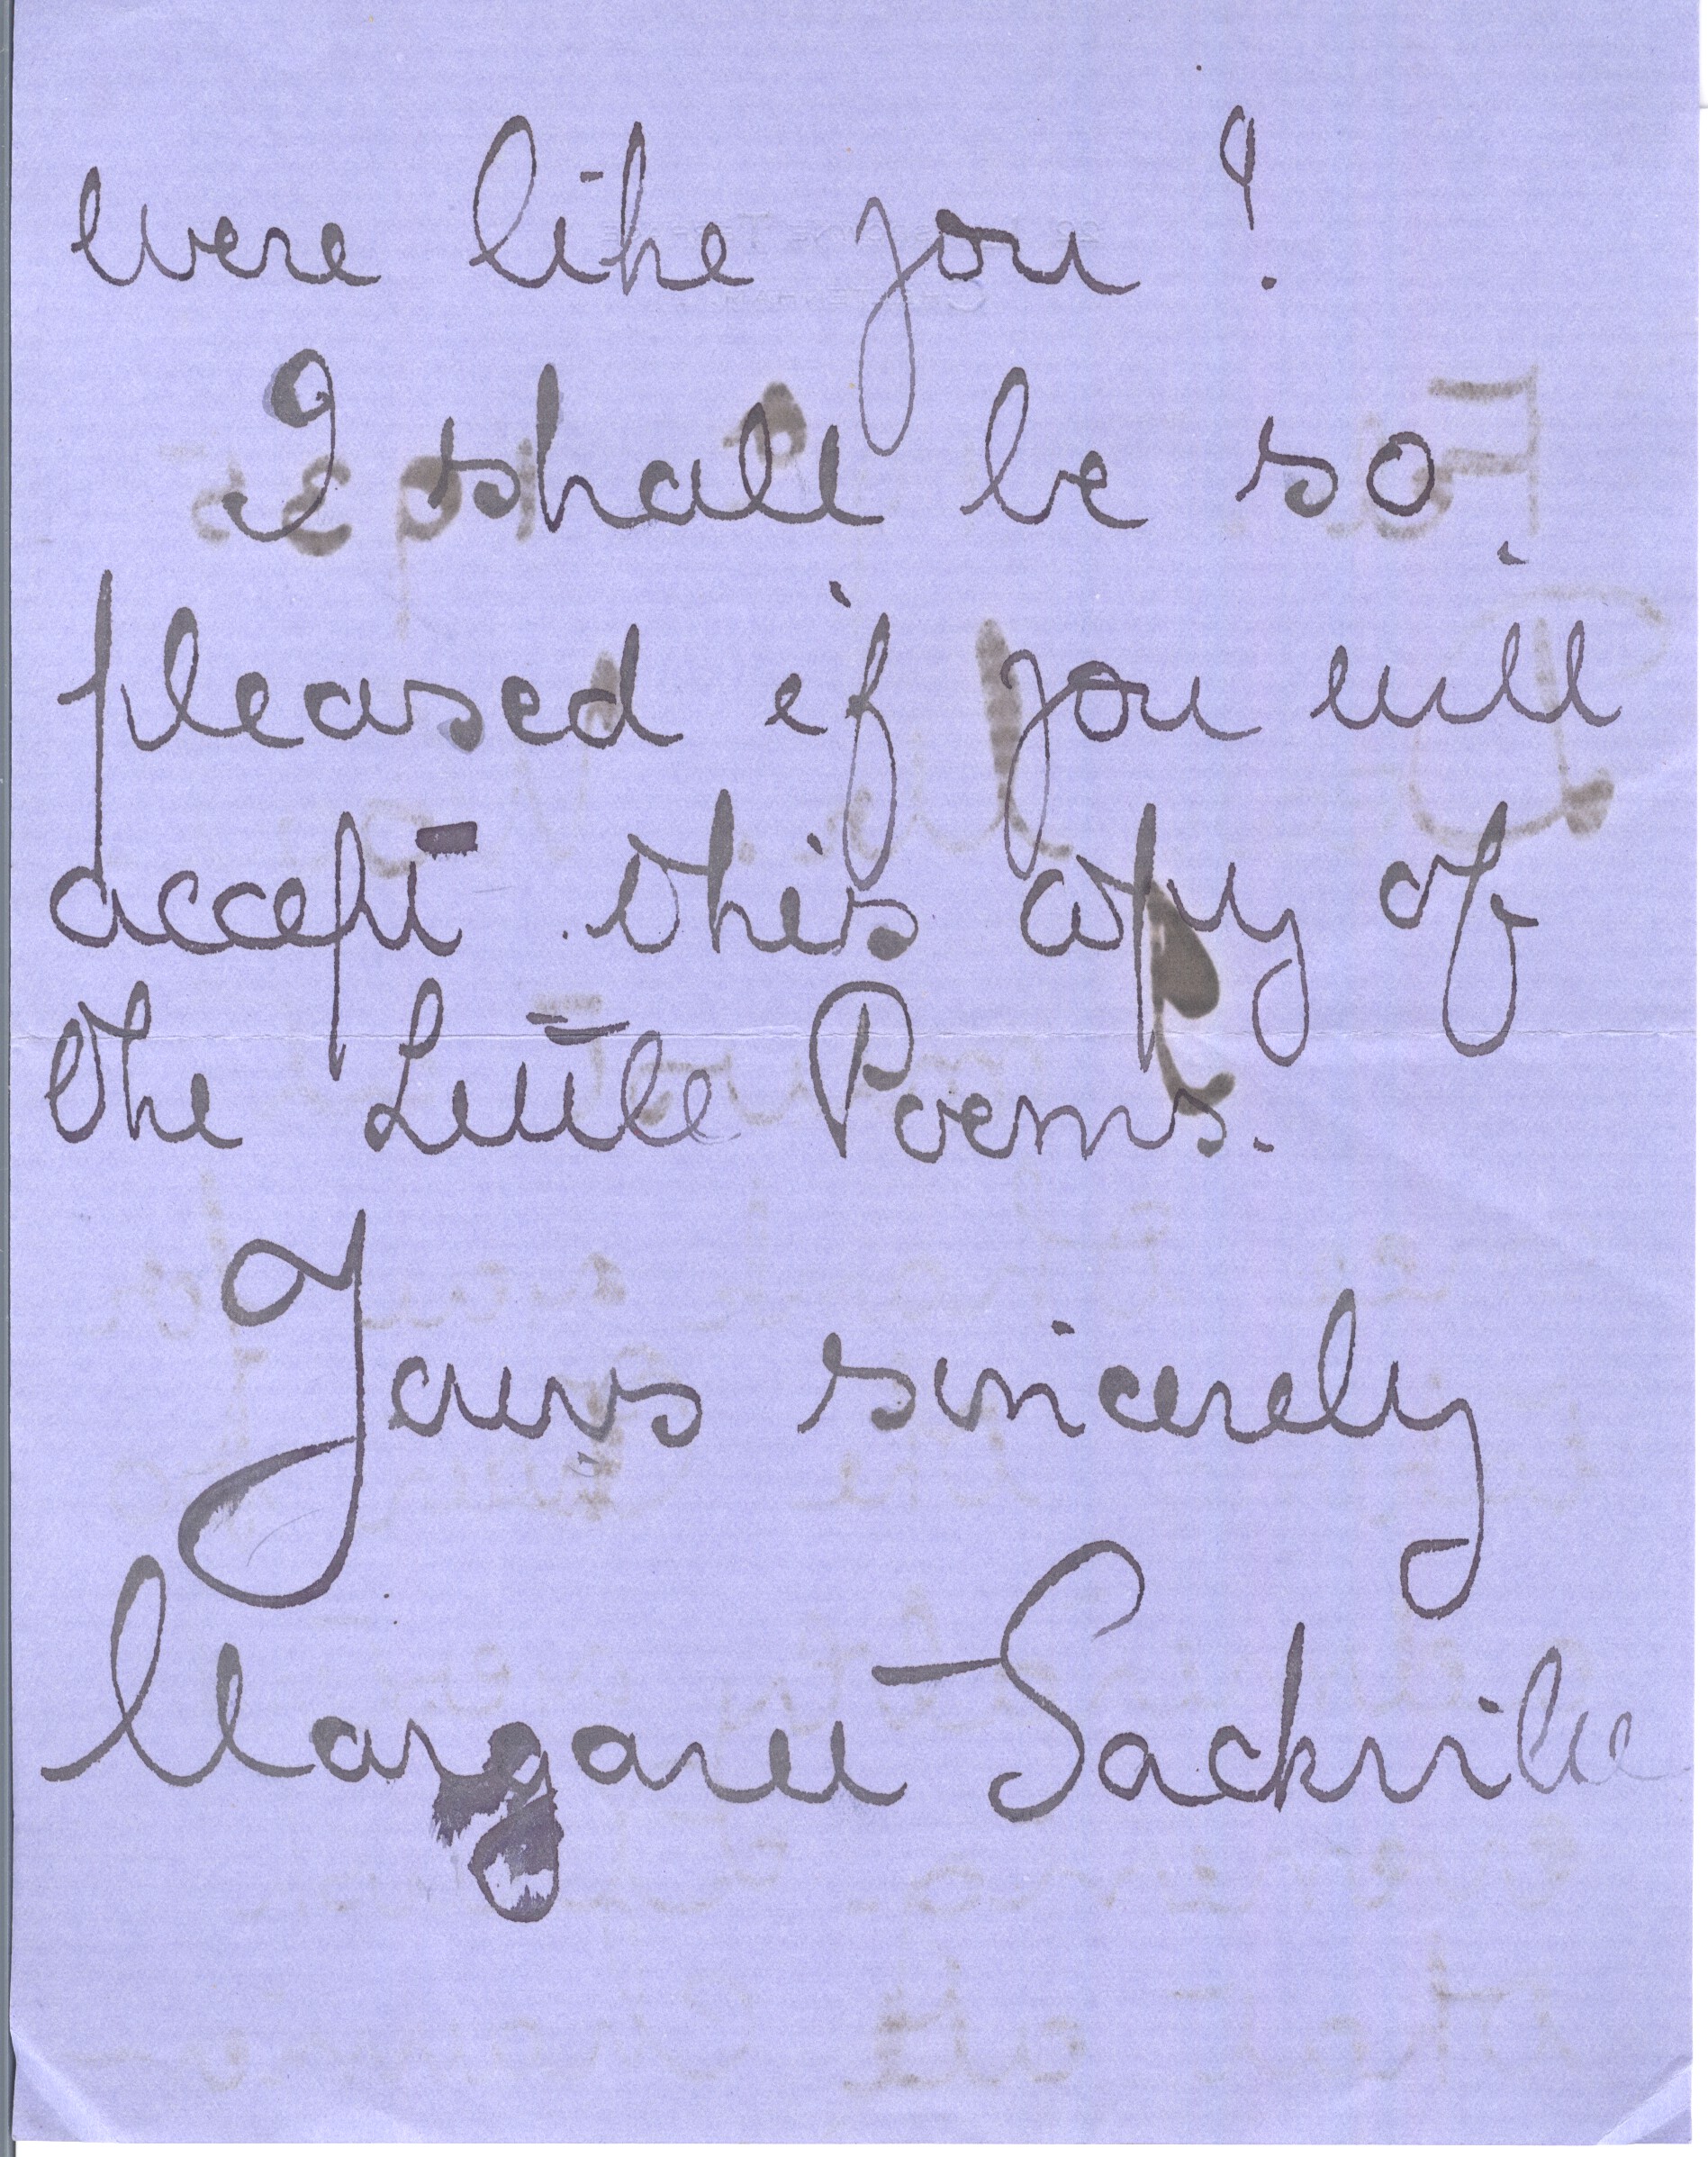 were like you!
I shall be so
pleased if you will
accept this copy of
the Little Poems.
Yours sincerely
Margaret Sackville